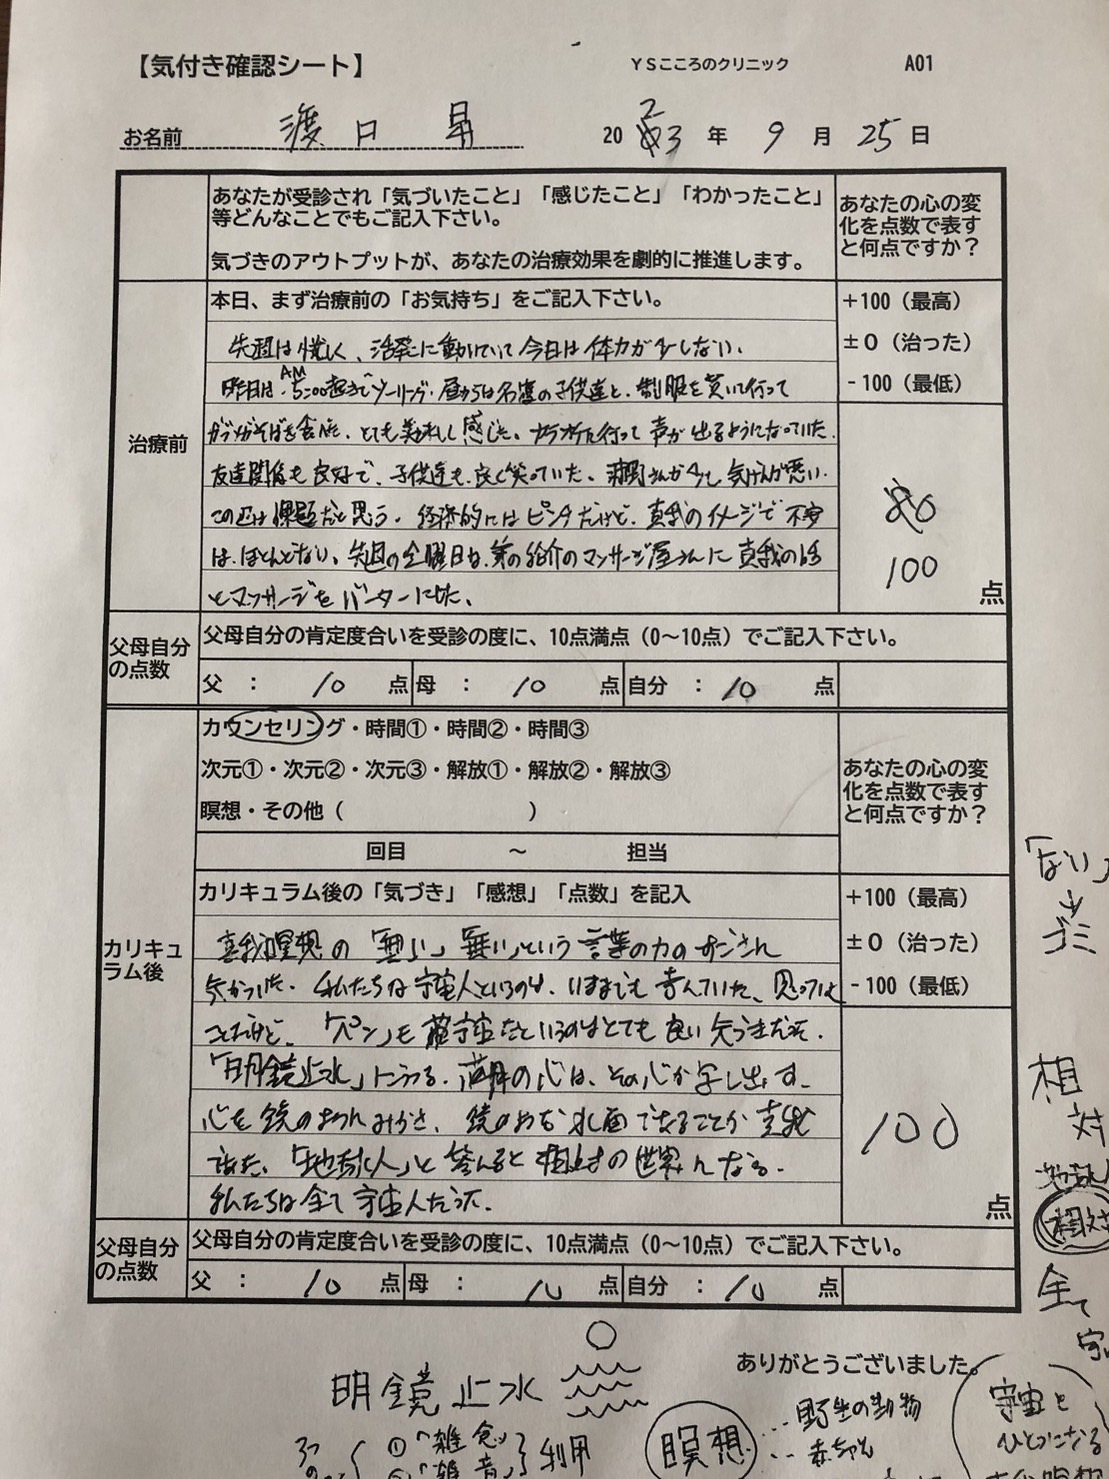 【気付き確認シート】
YSこころのクリニック
A01
お名前 渡口 昇
2023年 9月 25日
あなたが受診され「気づいたこと」「感じたこと」「わかったこと」
等どんなことでもご記入下さい。
気づきのアウトプットが、あなたの治療効果を劇的に推進します。
あなたの心の変
化を点数で表す
と何点ですか？
治療前
本日、まず治療前の「お気持ち」をご記入下さい。
先週は忙しく、活発に動いていて今日は体力が少しない.
昨日は、AM5:00起きでツーリング.昼からは名護の子供達と、制服を買いに行って
そばを食べた、とても美味しく感じた、カラオケに行って声が出るようになっていた.
友達関係も良好で、子供達も良く笑っていた、
は課題だと思う. 経済的にはピンチだけど、真我のイメージで不安
は、ほとんどない、先週の金曜日は、弟の紹介のマッサージ屋さんに真我の話
とマッサージをバーターにした、
+100（最高）
±0（治った）
-100（最低）
80
100
点
父母自分
の点数
父母自分の肯定度合いを受診の度に、10点満点（0～10点）でご記入下さい。
父 ： 10 点
母 ： 10 点
自分 ： 10 点
カリキュ
ラム後
カウンセリング・時間①・時間②・時間③
次元①・次元②・次元③・解放①・解放②・解放③
瞑想・その他（ ）
回目 ～ 担当
あなたの心の変
化を点数で表す
と何点ですか？
カリキュラム後の「気づき」「感想」「点数」を記入
真我瞑想の「無い」「無い」という言葉の力のすごさに
気がついた. 私たちは宇宙人というのも、いままでも学んでいた、思っていた
ことだけど、「ペン」も宇宙だというのはとても良い気づきだった.
「明鏡止水」にうつる. の心は、その心が写し出す.
心を鏡のようにみがき、鏡のような水面であることが真我
「地球人」と答えると相対の世界になる.
私たちは全て宇宙人だった.
+100（最高）
±0（治った）
-100（最低）
100
点
父母自分
の点数
父母自分の肯定度合いを受診の度に、10点満点（0～10点）でご記入下さい。
父 ： 10 点
母 ： 10 点
自分 ： 10 点
ありがとうございました。
「ない」
ゴミ
相
対
相対
全て
明鏡止水
①「雑念」
②「雑音」
利用
瞑想
野生の動物
赤ちゃん
宇宙と
ひとつになる